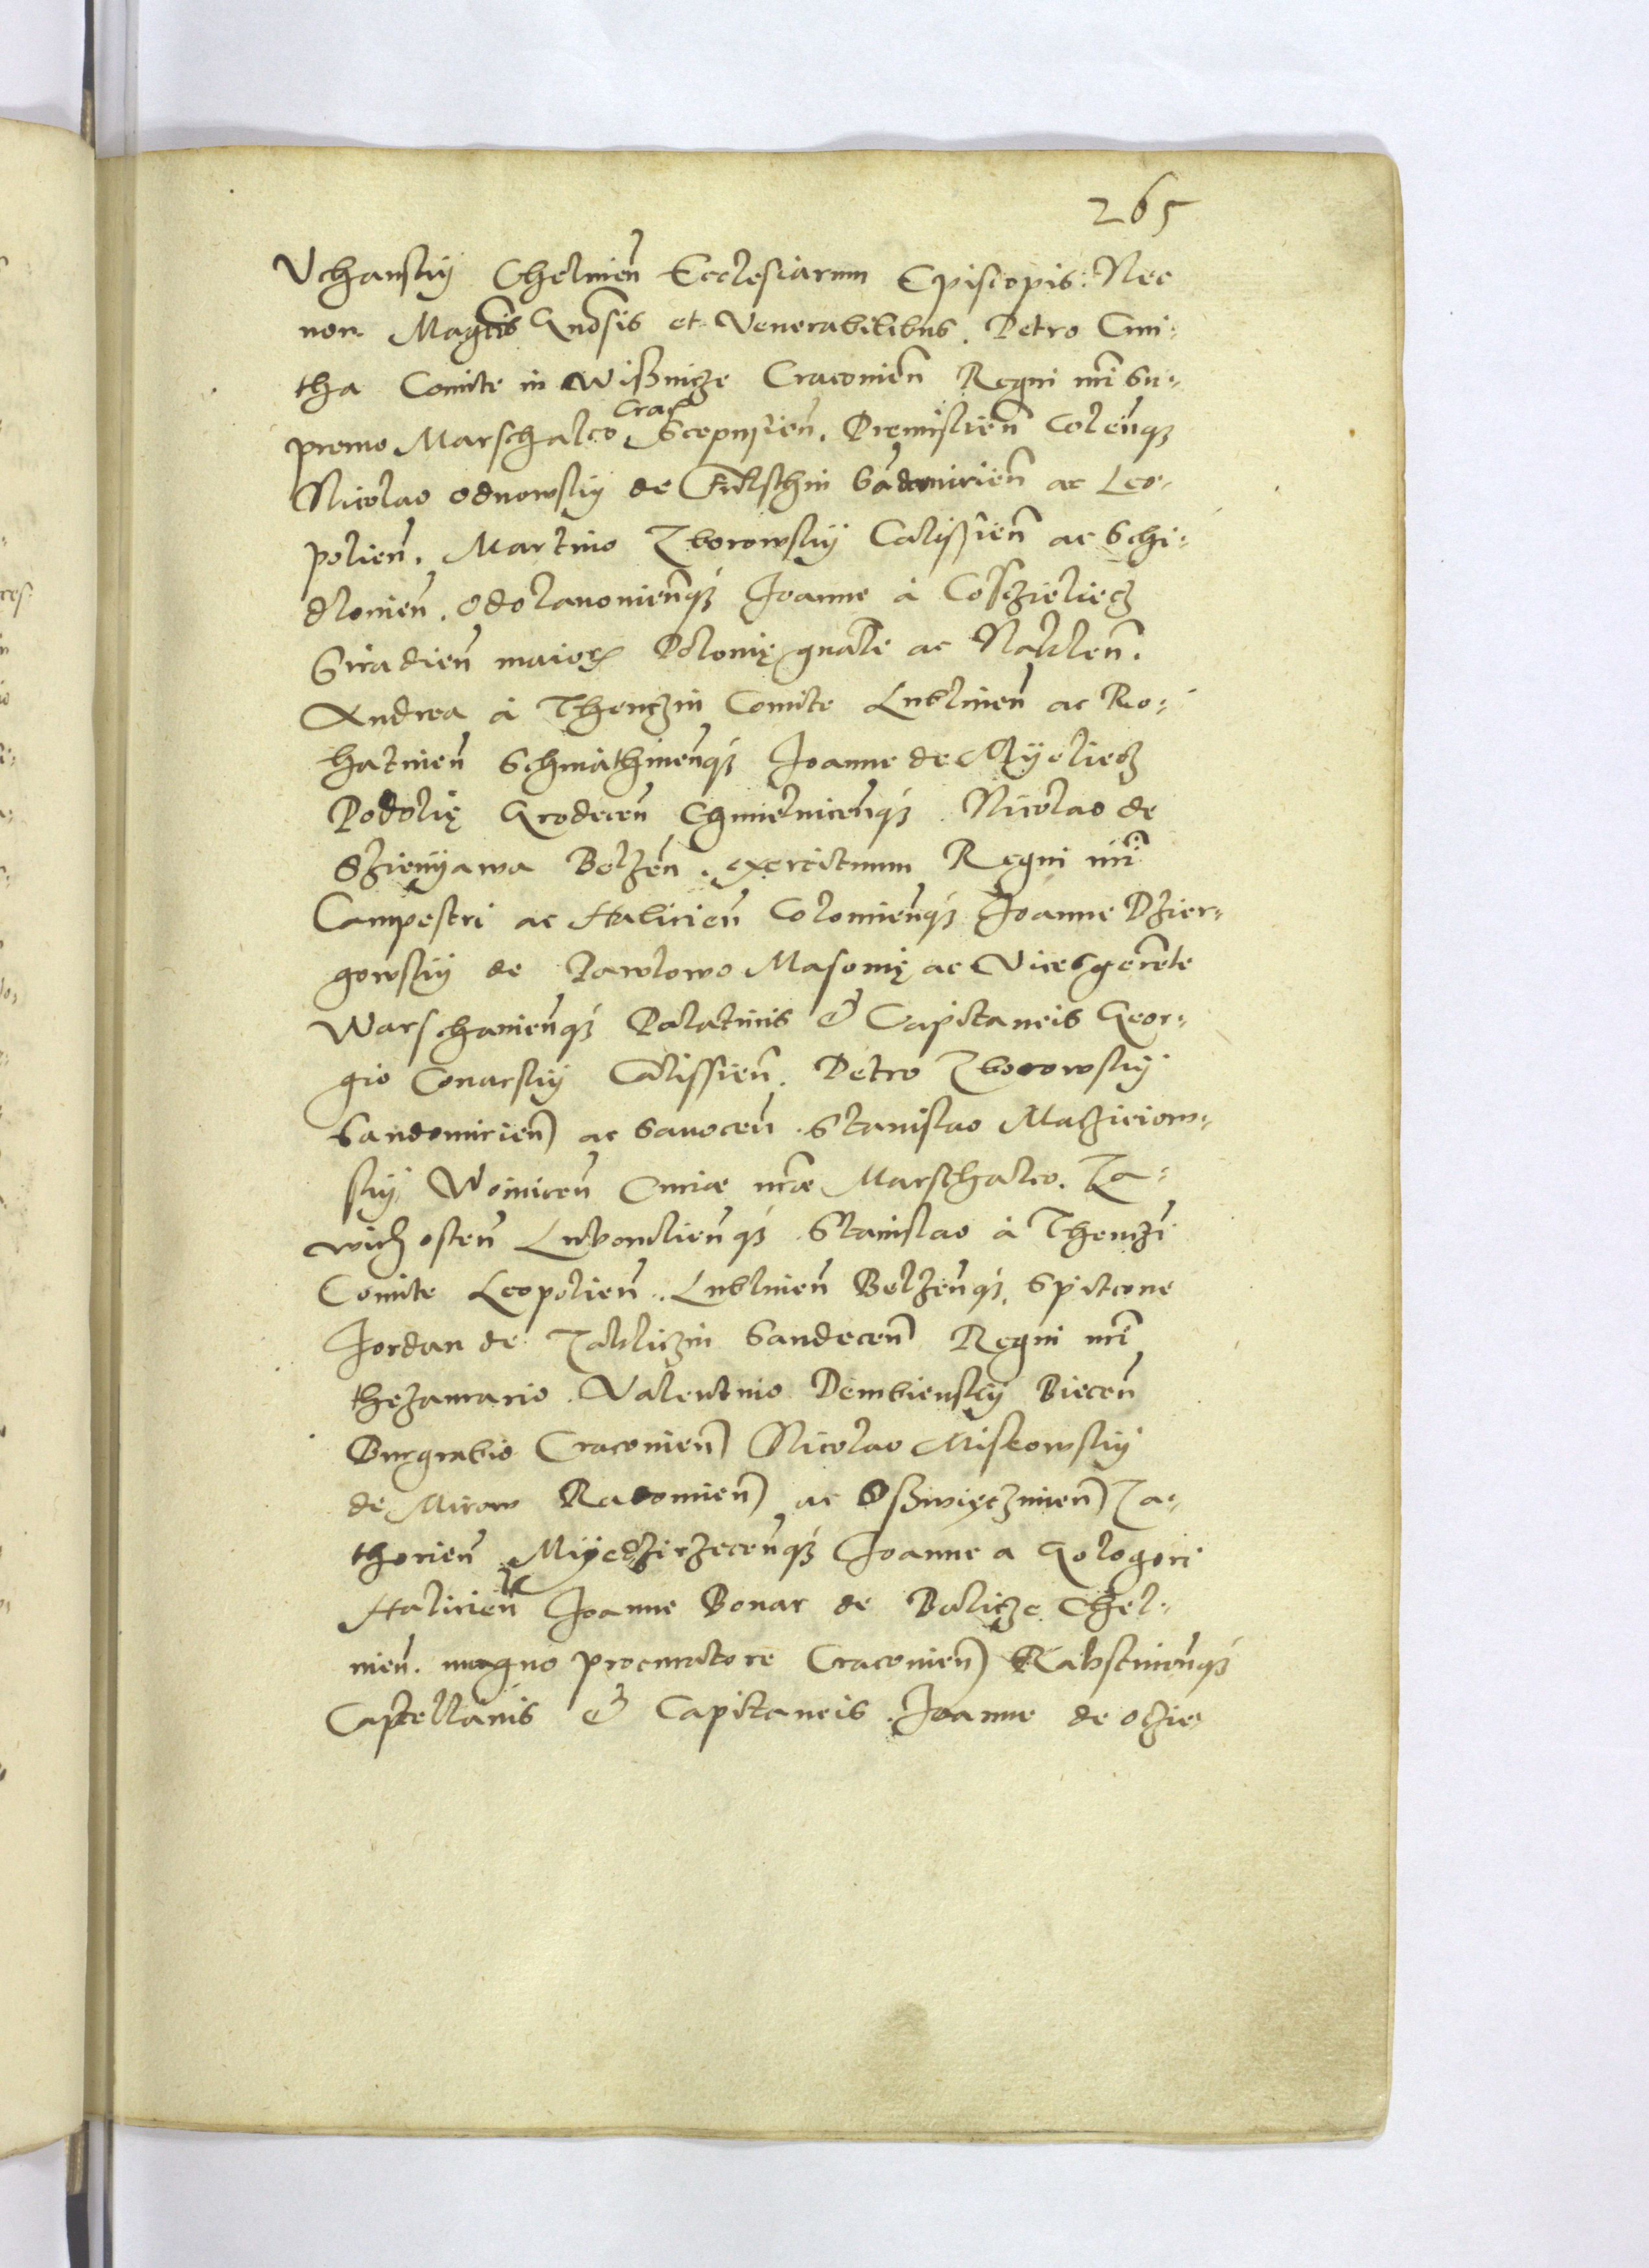 265
Vchanskÿ Chelmen̄ Ecclesiarum Episcopis: Nec
non Magcis Gnosis et Venerabilibus. Petro Cmi:
tha Comite in Wißnicze Cracouien̄ Regni nr̄i Su:
premo Marschalco, Crac Scepusien̄. Premislien̄ Colen̄q3
Nicolao Odnowskÿ de Fulschin Sādomirien̄ ac Leo:
polien̄. Martino Zborowskÿ Calißien̄ ac Schi:
dlouien̄. Odolanouien̄q3 Joanne à Cosczieliecz
Siradien̄ maioris Poloniȩ gnāle ac Naklen̄.
Andrea à Thenczin Comite Lublinen̄ ac Ro:
hatinen̄ Schniathinen̄q3 Joanne de Mÿeliecz
Podoliȩ Grodecen̄ Chmielnicen̄q3. Nicolao de
Szienÿawa Belzen̄. exercituum Regni nr̄i
Campestri ac Halicien̄ Colomien̄q3 Joanne Dzier:
gowskÿ de Pawlowo Masouiȩ ac Vicesgerēte
Warschauien̄q3 Palatinis & Capitaneis Geor:
gio Conarskÿ Calissien̄. Petro Zborowskÿ
Sandomirien̄ ac Sanocen̄. Stanislao Maczieiow:
skÿ Woinicen̄ Curiæ nr̄æ Marschalco. Za:
wichosten̄ Lubomlien̄q3 Stanislao à Thenczī
Comite Leopolien̄. Lublinen̄ Belzen̄q3. Spitcone
Jordan de Zakliczin Sandecen̄ Regni nr̄i
thezaurario. Valentino Dembienskÿ Biecen̄
Burgrabio Cracouien̄ Nicolao Miskowskÿ
de Mirow Radomien̄ ac Oßwięczimen̄ Za:
thorien̄ Mÿedzirzecen̄q3 Joanne a Gologori
Halicien̄ Joanne Bonar de Balicze Chel:
men̄. magno procuratore Cracouien̄ Rabstinen̄q3
Castellanis & Capitaneis. Joanne de Oczie: